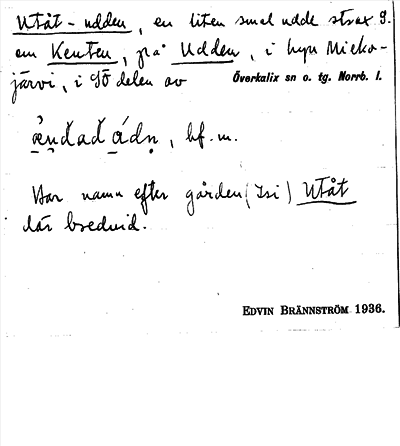 Utåt-udden, en liten smal udde strax S.
om Kenten, på Udden, i byn Mieko-
järvi, i SÖ delen av Överkalix sn o. tg. Norrb. l.
bf. m.
Har namn efter gården (Isi) Utåt
där bredvid.
EDVIN BRÄNNSTRÖM 1936.